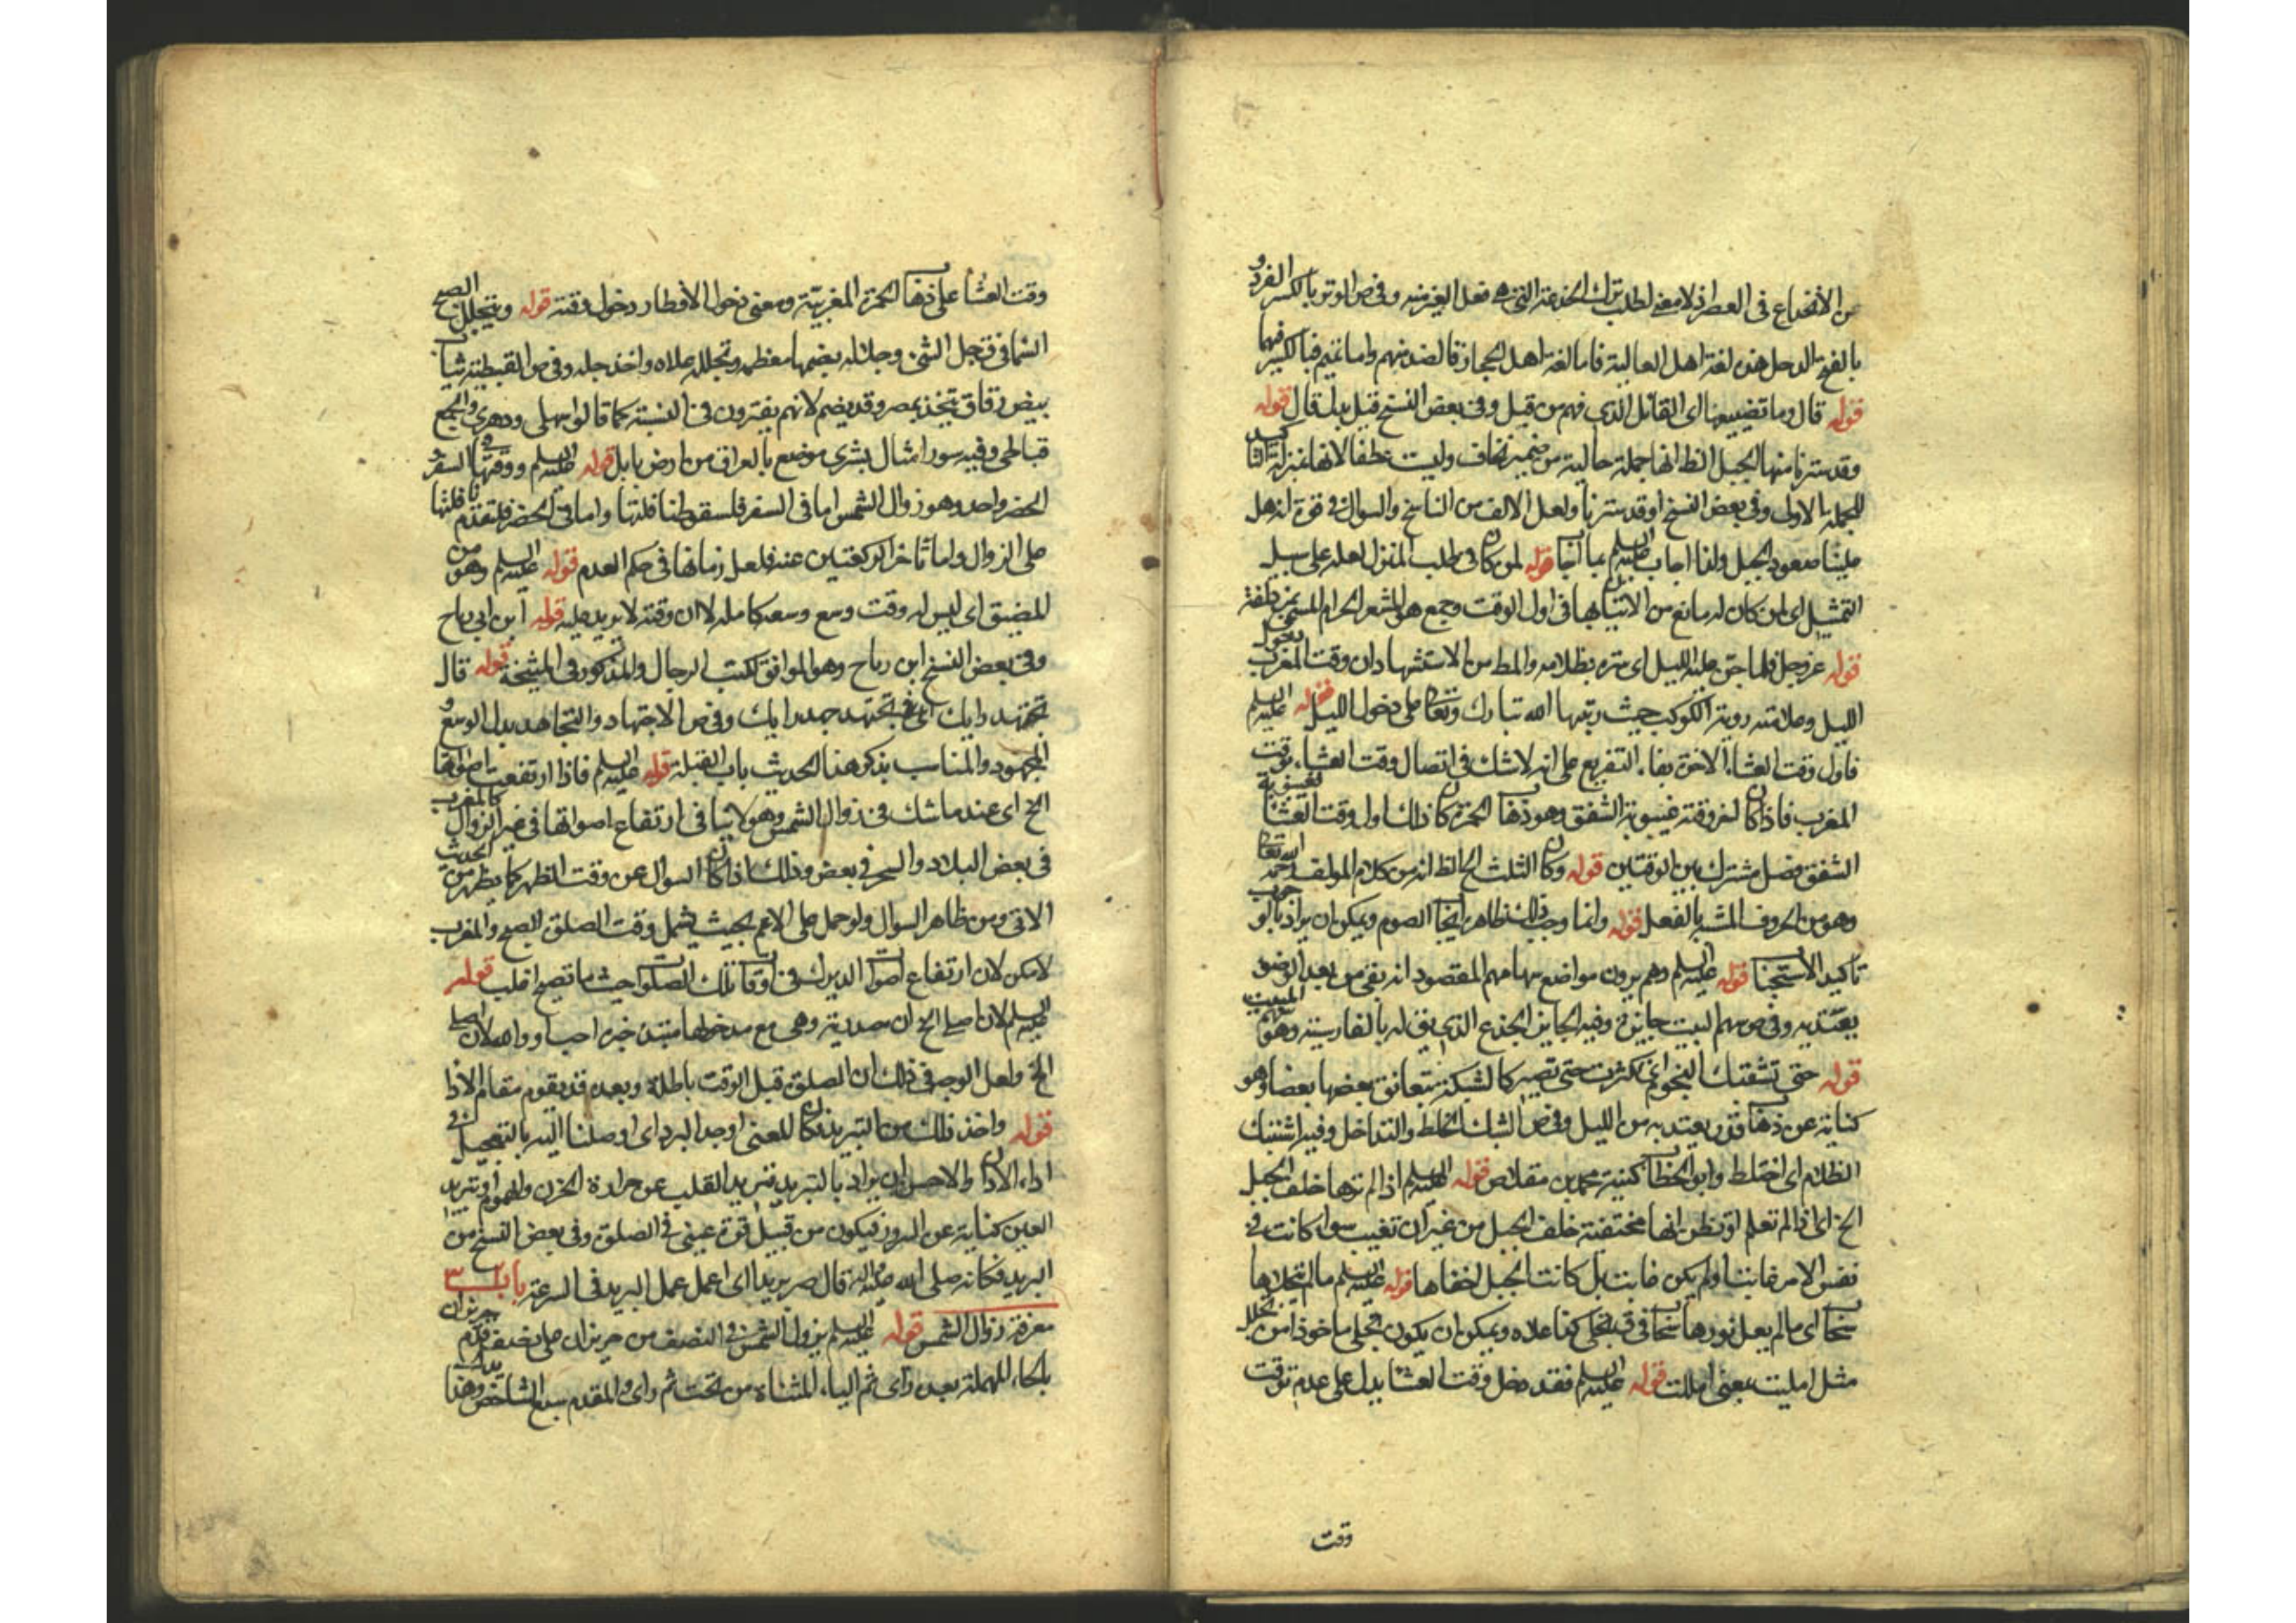 عن الانخداع في العصر اذ لا معنى لطلب ترك الخدعة التي هي فعل الغير منه وفي ص الوتر بالكسر الفرد و
بالفتح الدحل هذه لغة اهل العالية فاما لغة اهل الحجاز فالضد منهم واما تميم فبالكسر فيهما
قوله قال وما تضييعها اى القائل الذي فهم من قيل وفي بعض النسخ قيل بدل قال قوله
وقد سترنا منها الجبل الظ انها جملة حالية من ضمير نخاف وليست عطفا لانها بمنزلة
للجملة الاولى وفي بعض النسخ او قد سترنا ولعل الالف من الناسخ والسوال في قوة انه هل
علينا صعود الجبل ولذا اجاب عليه السلم بما اجاب قوله لمن كان في طلب المنزل لعله على سبيل
التمثيل اى لمن كان له مانع من الاتيان بها في اول الوقت وجمع هو المشعر الحرام المسمى بمزدلفة
قوله عز وجل فلما جن عليه الليل اى ستره بظلامه والمط من الاستشهاد ان وقت المغرب دخول
الليل وعلامته روية الكوكب حيث رتبها الله تبارك وتعالى على دخول الليل قوله عليه السلم
فاول وقت العشاء الاخرة بفاء التفريع على انه لا شك في اتصال وقت العشاء بوقت
المغرب فاذا كان اخر وقته غيبوبة الشفق وهو ذهاب الحمرة كان ذلك اول وقت العشاء
الشفق فصل مشترك بين الوقتين قوله وكان الثلث الخ الظ انه من كلام المولف رحمه الله تعالى
وهو من الحروف المشبه بالفعل قوله وانما وجب ذلك ظاهره ايجاب الصوم ويمكن ان يراد بالوجوب
تاكيد الاستحباب قوله عليه السلم وهم يرون مواضع سهامهم المقصود انه بقي من بعد الضوء
يعتد به وفي ص سهم البيت جايزه وفيه الجايز الجذع الذي يق له بالفارسية وهو سهم البيت
قوله حتى تشتبك النجوم اى كثرت حتى تصير كالشبكة يتعانق بعضها بعضا وهو
كناية عن ذهاب قدر يعتد به من الليل وفي ص الشبك الخلط والتداخل وفيه اشتبك
الظلام اى اختلط وابو الخطاب كنية محمد بن مقلاص قوله عليه السلم اذا لم ترها خلف الجبل
الخ اى اذا لم تعلم او تظن انها مختفية خلف الجبل من غير ان تغيب سواء كانت في
نفس الامر غابت او لم يكن غابت بل كانت الجبل اخفاها قوله عليه السلم ما لم يتجللها
سحاب اى ما لم يعل نورها سحاب في ق تجلى كذا علاه ويمكن ان يكون تجلى ماخوذا من تجلل
مثل امليت بمعنى امللت قوله عليه السلم فقد دخل وقت العشاء يدل على عدم توقت
وقت
وقت العشاء على ذهاب الحمرة المغربية ومعنى دخول الافطار دخول وقته قوله ويتجلل الصبح
السماء في ق جل الشيء وجلاله بضمهما معظمه وتجلله علاه واخذ جله وفي ص القبطية ثياب
بيض رقاق يتخذ بمصر وقد يضم لانهم يغيرون في النسبة كما قالوا سهلي ودهري والجمع
قباطي وفيه سورا مثال بشرى موضع بالعراق من ارض بابل قوله عليه السلم ووقتها في السفر و
الحضر واحد وهو زوال الشمس اما في السفر فلسقوط نافلتها واما في الحضر فلتقدم نافلتها
على الزوال واما تاخر الركعتين عنه فلعل زمانها في حكم العدم قوله عليه السلم وهو من
المضيق اى ليس له وقت وسع وسعه كامله لا ان وقته لا يزيد عليه قوله ابن ابي رباح
وفي بعض النسخ ابن رباح وهو الموافق لكتب الرجال والمذكور في المشيخة قوله قال
تجتهد رايك اى تجتهد جهد رايك وفي ص الاجتهاد والتجاهد بذل الوسع و
المجهود والمناسب بذكر هذا الحديث باب القبلة قوله عليه السلم فاذا ارتفعت اصواتها
الخ اى عند ما شك في زوال الشمس وهو لا ينافي ارتفاع اصواتها في غير الزوال كالمغرب
في بعض البلاد والسحر في بعض وذلك اذا كان السوال عن وقت الظهر كما يظهر من الحديث
الاتي ومن ظاهر السوال ولو حمل على الاعم بحيث يشمل وقت الصلوة الصبح والمغرب
لامكن لان ارتفاع اصوات الديوك في اوقات تلك الصلوات حيث ما تصيح اغلب قوله
عليه السلم لان اصلى الخ ان مصدرية وهي مع مدخولها مبتدء خبره احب او والله لان اصلى
الخ ولعل الوجه في ذلك ان الصلوة قبل الوقت باطلة وبعده قد يقوم مقام الاداء
قوله واخذ ذلك من التبريد كان المعنى اوجد البرد اى اوصلنا اليه بالتعجيل في
اداء الاذان والاحسن ان يراد بالتبريد تبريد القلب عن حرارة الحزن والهموم او تبريد
العين كناية عن السرور فيكون من قبيل قرة عيني في الصلوة وفي بعض النسخ من
البريد فكانه صلى الله عليه واله قال صر بريدا اى اعمل عمل البريد في السرعة باب
معرفة زوال الشمس قوله عليه السلم يزول الشمس في النصف من حزيران على نصف قدم حزيران
بالحاء المهملة بعده زاى ثم الياء المثناة من تحت ثم راى والمقدم سبع الشاخص وهذا